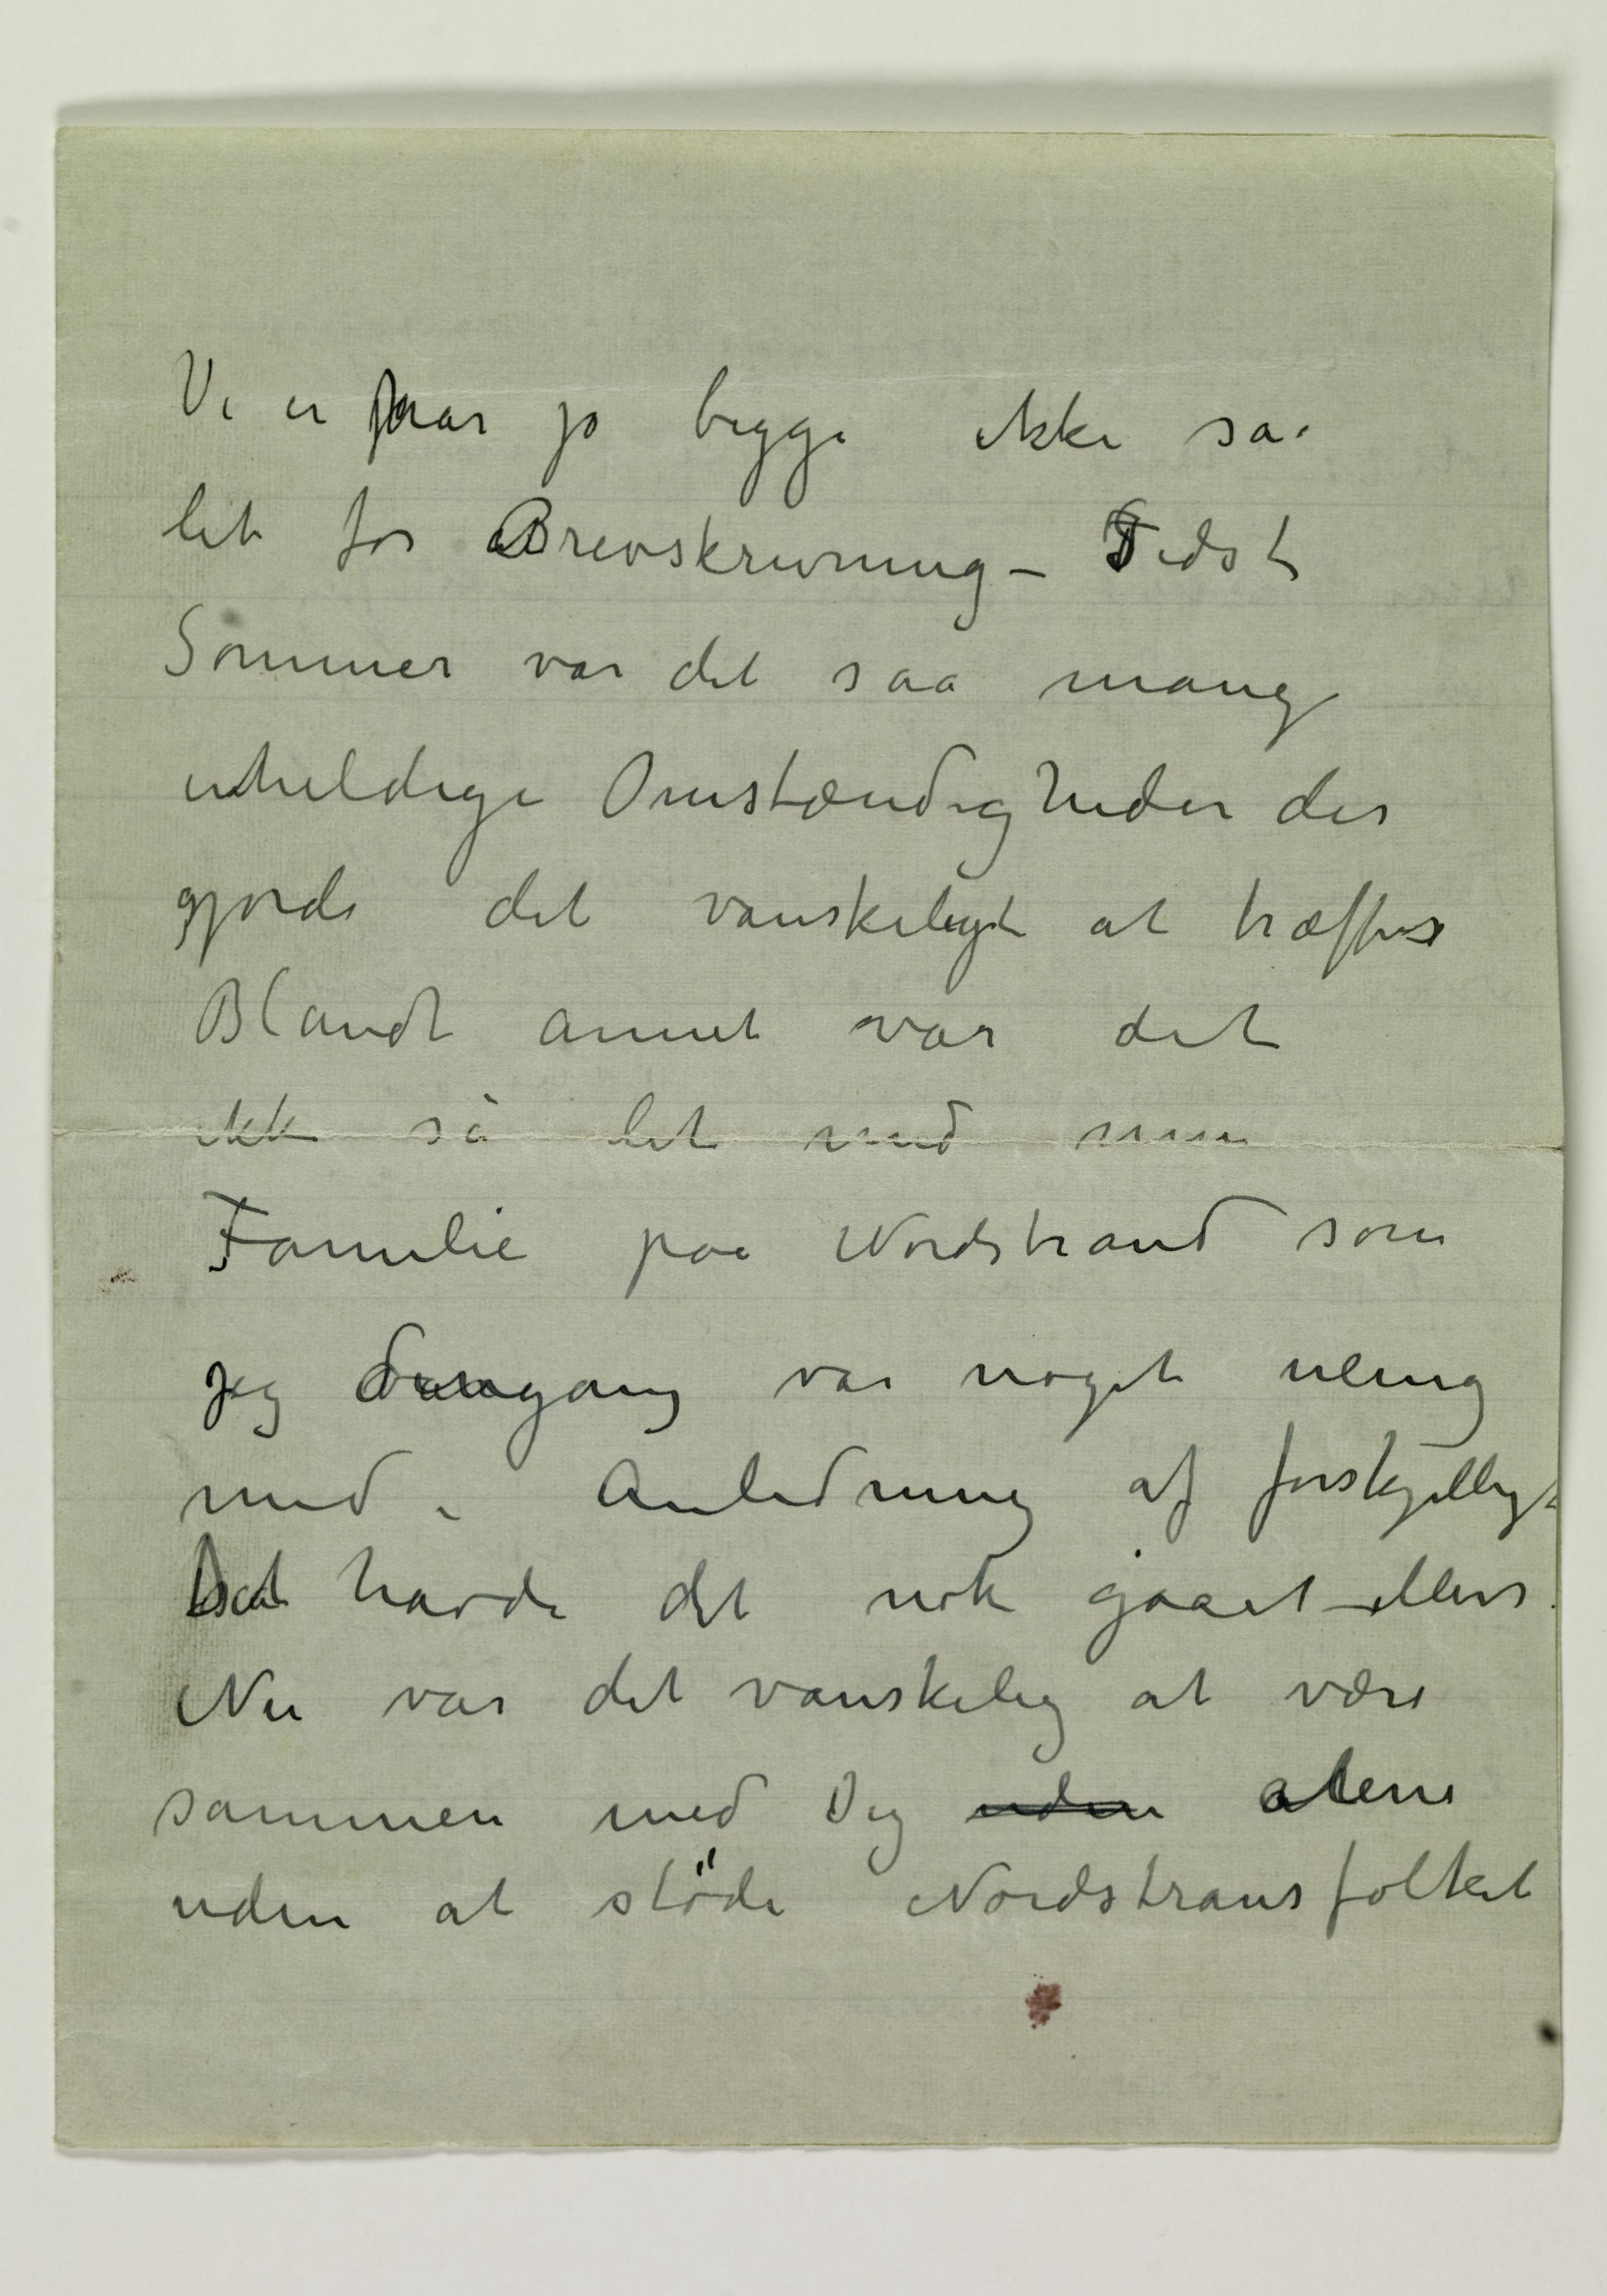 Vi er faar jo begge ikke saa
let for Brevskrivning – Sidst
Sommer var det saa mang
uheldige Omstændigheder der
gjorde det vanskeligt at træffes
Blandt annet var det
ikke så let med min
Familie paa Nordstrand som
jeg dengang var noget uenig
med i Anledning af forskjelligt
havde det nok gaaet – ellers.
Nu var det vanskelig at være
sammen med Dig uden alene
uden at støde Nordstransfolket